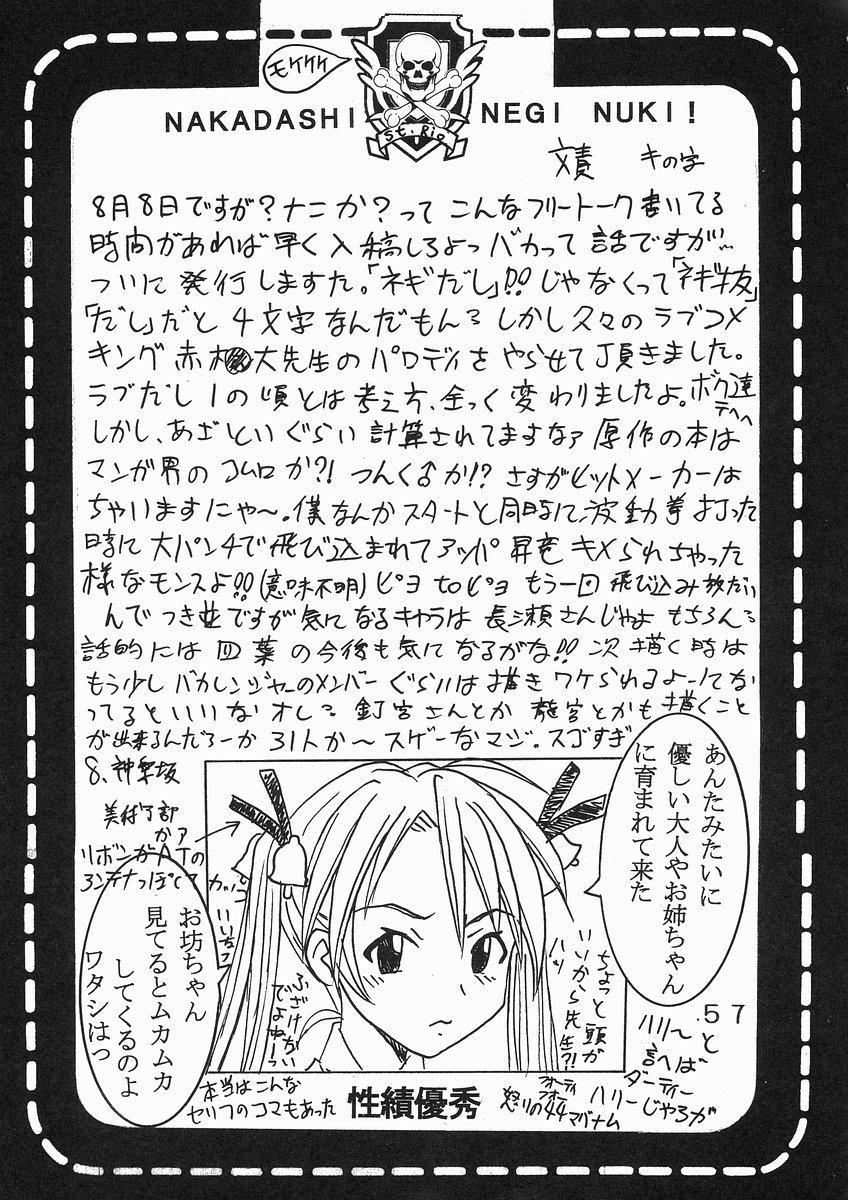 モケケケ
NAKADASHI NEGI NUKI!
St. Rio
文責 キの字
8月8日ですが?ナニか?って こんなフリートーク書いてる
時間があれば早く入稿しろよっバカって話ですが…
ついに発行しますた。「ネギだし」!!じゃなくって「ネギ抜」
「だし」だと4文字なんだもん しかし久々のラブコメ
キング赤松大先生のパロディをやらせて頂きました。
ラブだし1の頃とは考え方、全っく変わりましたよ。ボク達
テヘヘ
しかし、あざといぐらい計算されてますなァ原作の本は
マンガ界のコムロか?!つんく♂か!?さすがヒットメーカーは
ちゃいますにゃ〜。僕なんかスタートと同時に波動拳打った
時に大パンチで飛び込まれてアッパ昇竜キメられちゃった
様なモンスよ!!(意味不明)ピヨtoピヨ もう一回飛び込み放だい
んでつき並ですが気になるキャラは長瀬さんじゃよ もちろん
話的には四葉の今後も気になるがな!!次描く時は
もう少しバカレンジャーのメンバーぐらいは描きワケられるよーってな
ってるといいなオレ 釘宮さんとか龍宮とかも描くこと
が出来るんだろーか31人か〜スゲーなマジ。スゴすぎ
8、神楽坂
美術部
かァ
リボンがATの
アンテナっぽくて
カッコ
いいっ
あんたみたいに
優しい大人やお姉ちゃん
に育まれて来た
お坊ちゃん
見てるとムカムカ
してくるのよ
ワタシはっ
ちょっと頭が
いいから先生?!
ハッ
ふざけない
でよねーっ
本当はこんな
セリフのコマもあった
性績優秀
フォーティ
フォー
怒りの44マグナム
ハリ〜と
言へば
ダーティー
ハリーじゃろが
57